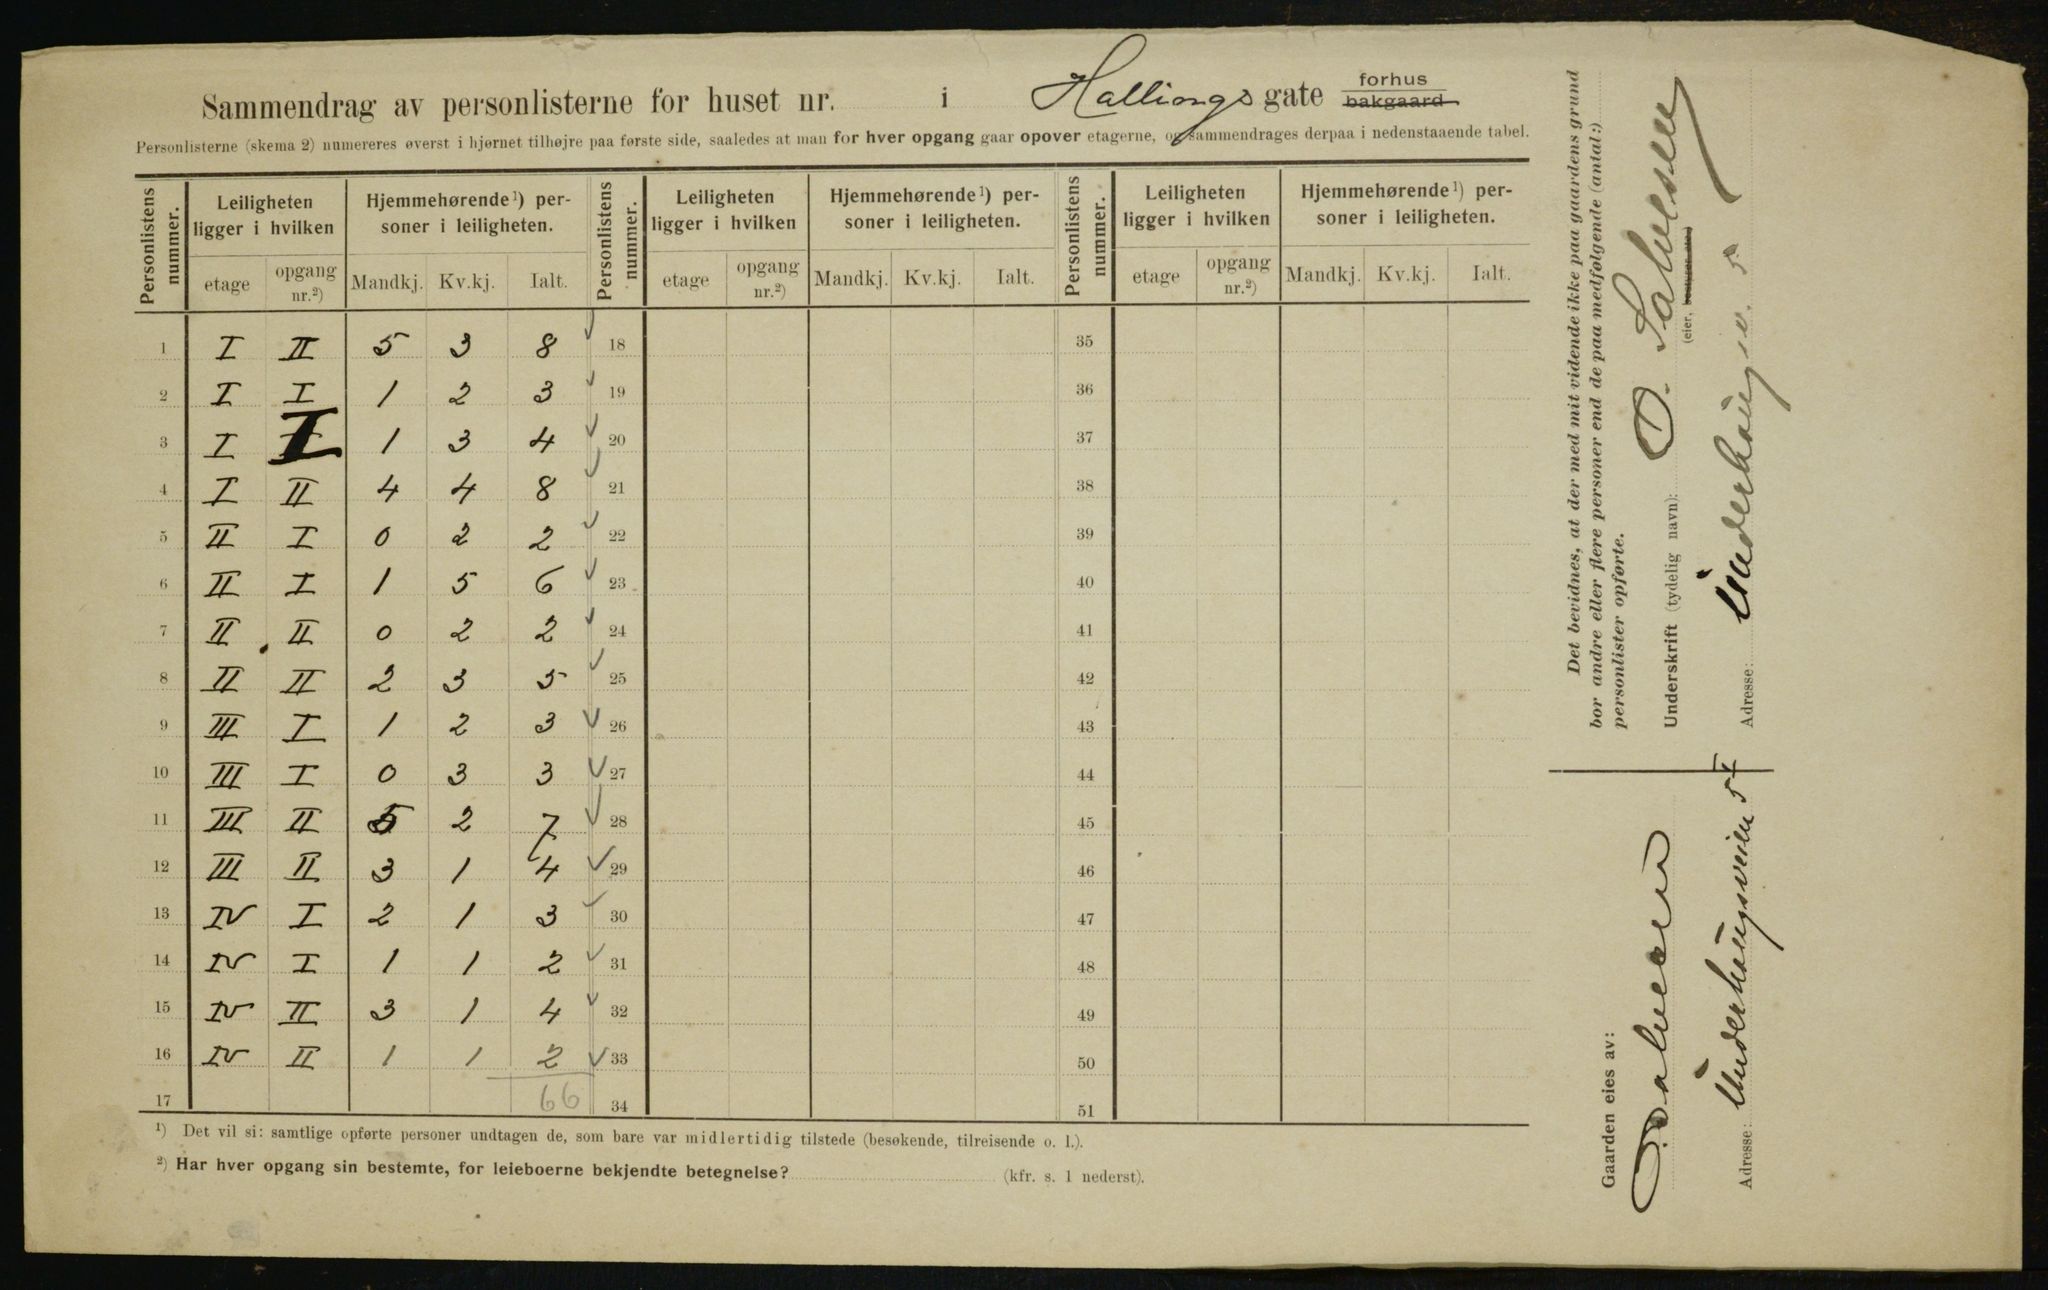 Sammendrag av personlisterne for huset nr. i Hallings gate forhus bakgaard
Personlisterne (skema 2) numereres øverst i hjørnet tilhøjre paa første side, saaledes at man for hver opgang gaar opover etagerne, og sammendrages derpaa i nedenstaaende tabel.
Personlistens nummer. Leiligheten ligger i hvilken Hjemmehørende¹) personer i leiligheten. Personlistens nummer. Leiligheten ligger i hvilken Hjemmehørende¹) personer i leiligheten. Personlistens nummer. Leiligheten ligger i hvilken Hjemmehørende¹) personer i leiligheten.
etage opgang nr.²) Mandkj. Kv.kj. Ialt. etage opgang nr.²) Mandkj. Kv.kj. Ialt. etage opgang nr.²) Mandkj. Kv.kj. Ialt.
1 I II 5 3 8 ✓ 18 35
2 I I 1 2 3 ✓ 19 36
3 I I 1 3 4 ✓ 20 37
4 I II 4 4 8 ✓ 21 38
5 II I 0 2 2 ✓ 22 39
6 II I 1 5 6 ✓ 23 40
7 II II 0 2 2 ✓ 24 41
8 II II 2 3 5 ✓ 25 42
9 III I 1 2 3 ✓ 26 43
10 III I 0 3 3 ✓ 27 44
11 III II 5 2 7 ✓ 28 45
12 III II 3 1 4 ✓ 29 46
13 IV I 2 1 3 ✓ 30 47
14 IV I 1 1 2 ✓ 31 48
15 IV II 3 1 4 ✓ 32 49
16 IV II 1 1 2 ✓ 33 50
17 66 34 51
¹) Det vil si: samtlige opførte personer undtagen de, som bare var midlertidig tilstede (besøkende, tilreisende o. l.).
²) Har hver opgang sin bestemte, for leieboerne bekjendte betegnelse? (kfr. s. 1 nederst).
Det bevidnes, at der med mit vidende ikke paa gaardens grund
bor andre eller flere personer end de paa medfølgende (antal:)
personlister opførte.
Underskrift (tydelig navn): O. Salvesen
(eier, bestyrer etc.)
Adresse: Underhaugsv. 5
Gaarden eies av:
O. Salvesen
Adresse: Underhaugsveien 5 I